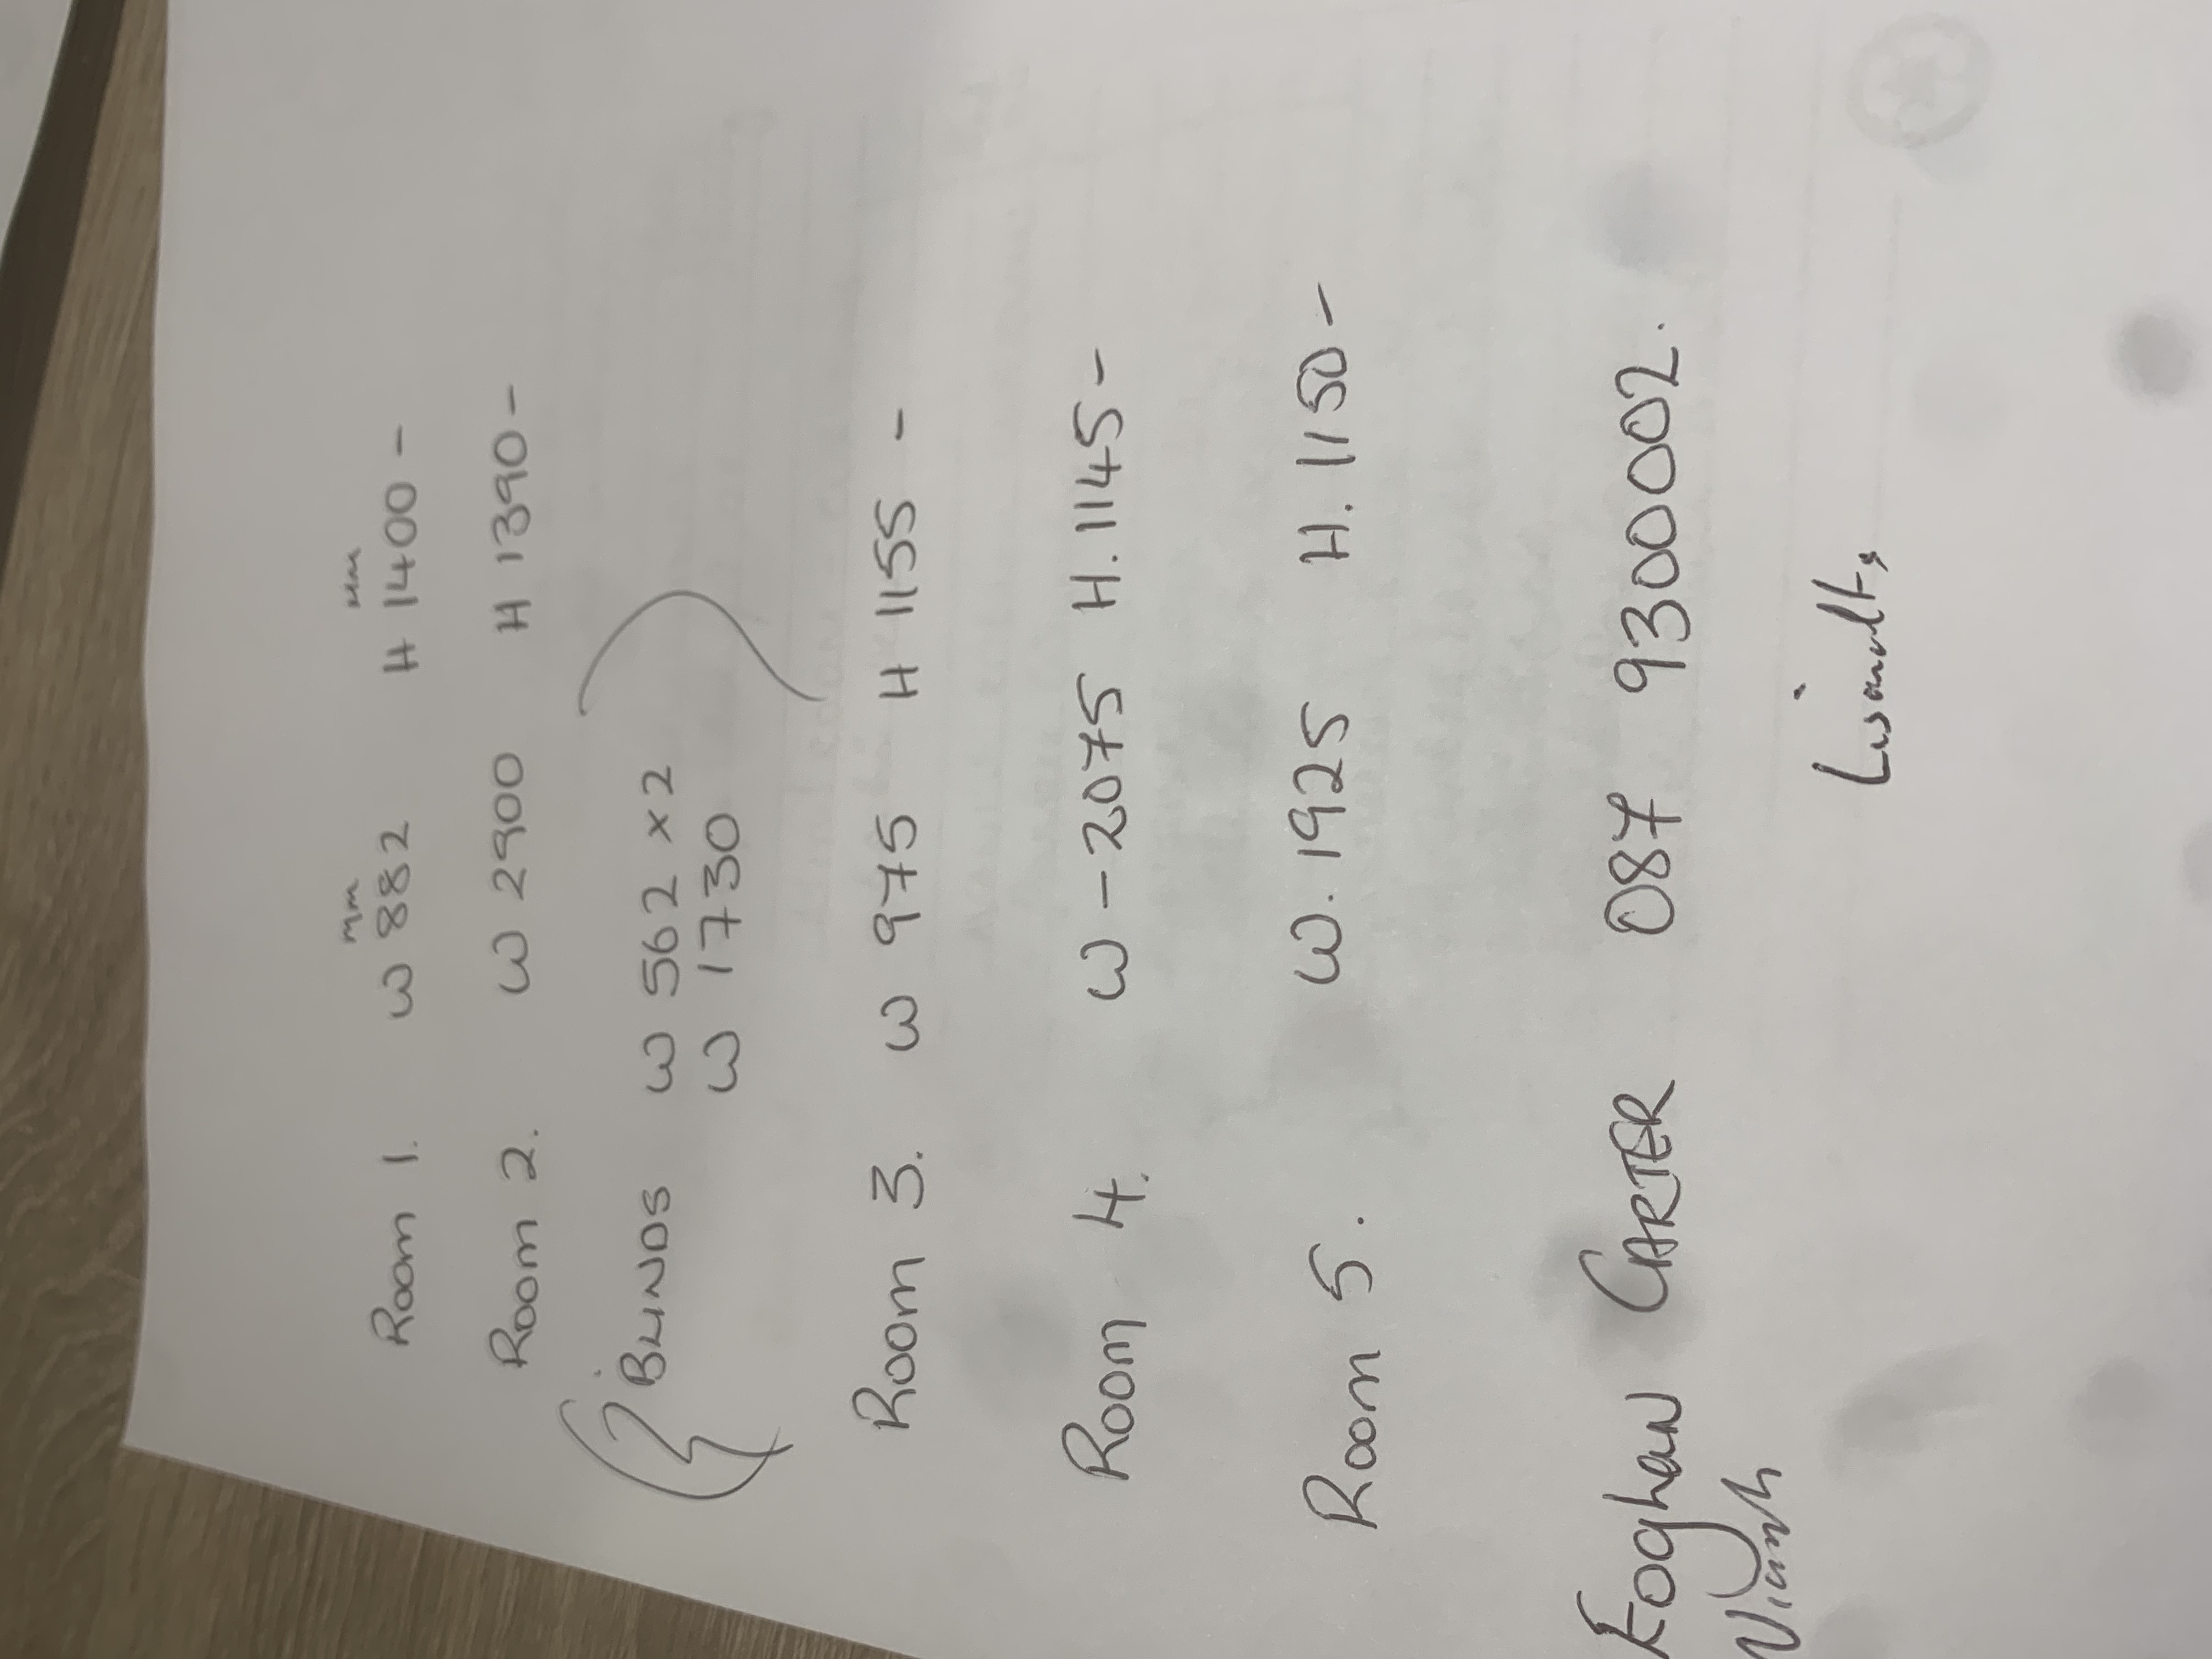 mm mm
Room 1. W 882 H 1400 -
Room 2. W 2900 H 1390 -
BLINDS W 562 x 2
W 1730
Room 3. W 975 H 1155 -
Room 4. W - 2075 H. 1145 -
Room 5. W. 1925 H. 1150 -
Eoghan CARTER 087 9300002.
Niamh